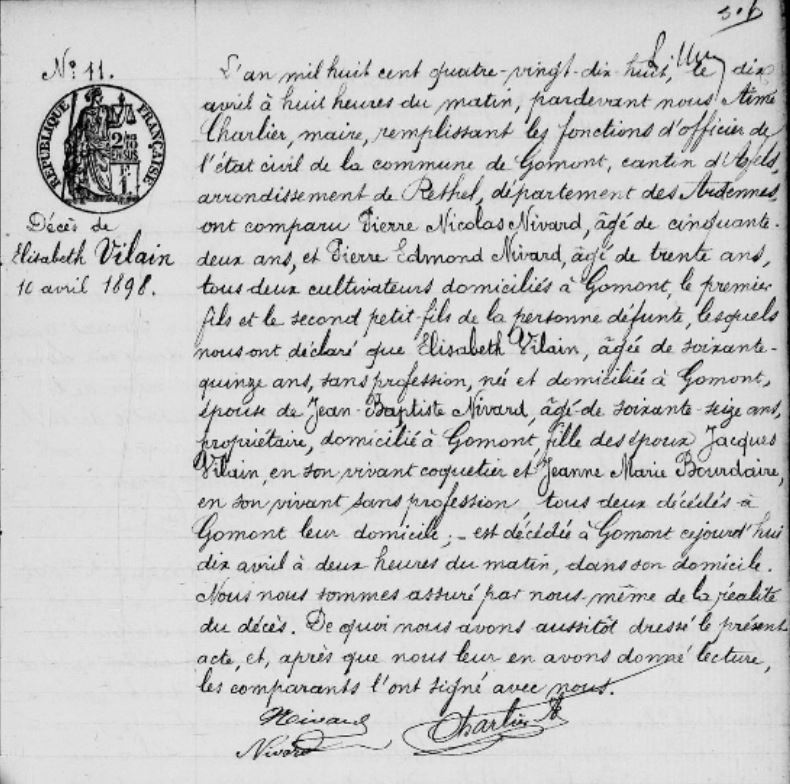 N° 11.
RÉPUBLIQUE FRANÇAISE
2/10 EN SUS
1 F
Décès de
Elisabeth Vilain
10 avril 1898.
L'an mil huit cent quatre-vingt-dix huit, le dix
avril à huit heures du matin, pardevant nous Aimé
Charlier, maire, remplissant les fonctions d'officier de
l'état civil de la commune de Gomont, canton d'Asfeld,
arrondissement de Rethel, département des Ardennes,
ont comparu Pierre Nicolas Nivard, âgé de cinquante-
deux ans, et Pierre Edmond Nivard, âgé de trente ans,
tous deux cultivateurs domiciliés à Gomont, le premier
fils et le second petit-fils de la personne défunte, lesquels
nous ont déclaré que Elisabeth Vilain, âgée de soixante-
quinze ans, sans profession, née et domiciliée à Gomont,
épouse de Jean-Baptiste Nivard, âgé de soixante-seize ans,
propriétaire, domicilié à Gomont, fille des époux Jacques
Vilain, en son vivant coquetier et Jeanne Marie Bourdaire,
en son vivant sans profession, tous deux décédés à
Gomont leur domicile; - est décédée à Gomont cejourd'hui
dix avril à deux heures du matin, dans son domicile.
Nous nous sommes assuré par nous-même de la réalité
du décès. De quoi nous avons aussitôt dressé le présent
acte, et, après que nous leur en avons donné lecture,
les comparants l'ont signé avec nous.
Nivard
Charlier A
Nivard